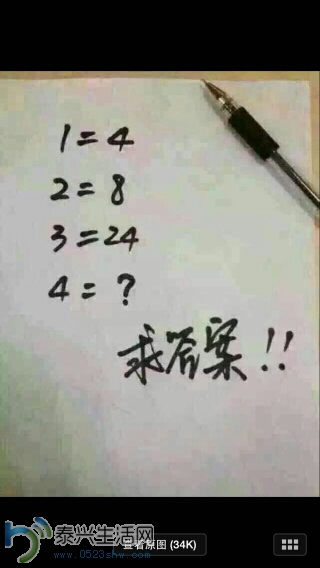 1=4
2=8
3=24
4=?
求答案!!
泰兴生活网
www.0523shw.com
查看原图(34K)